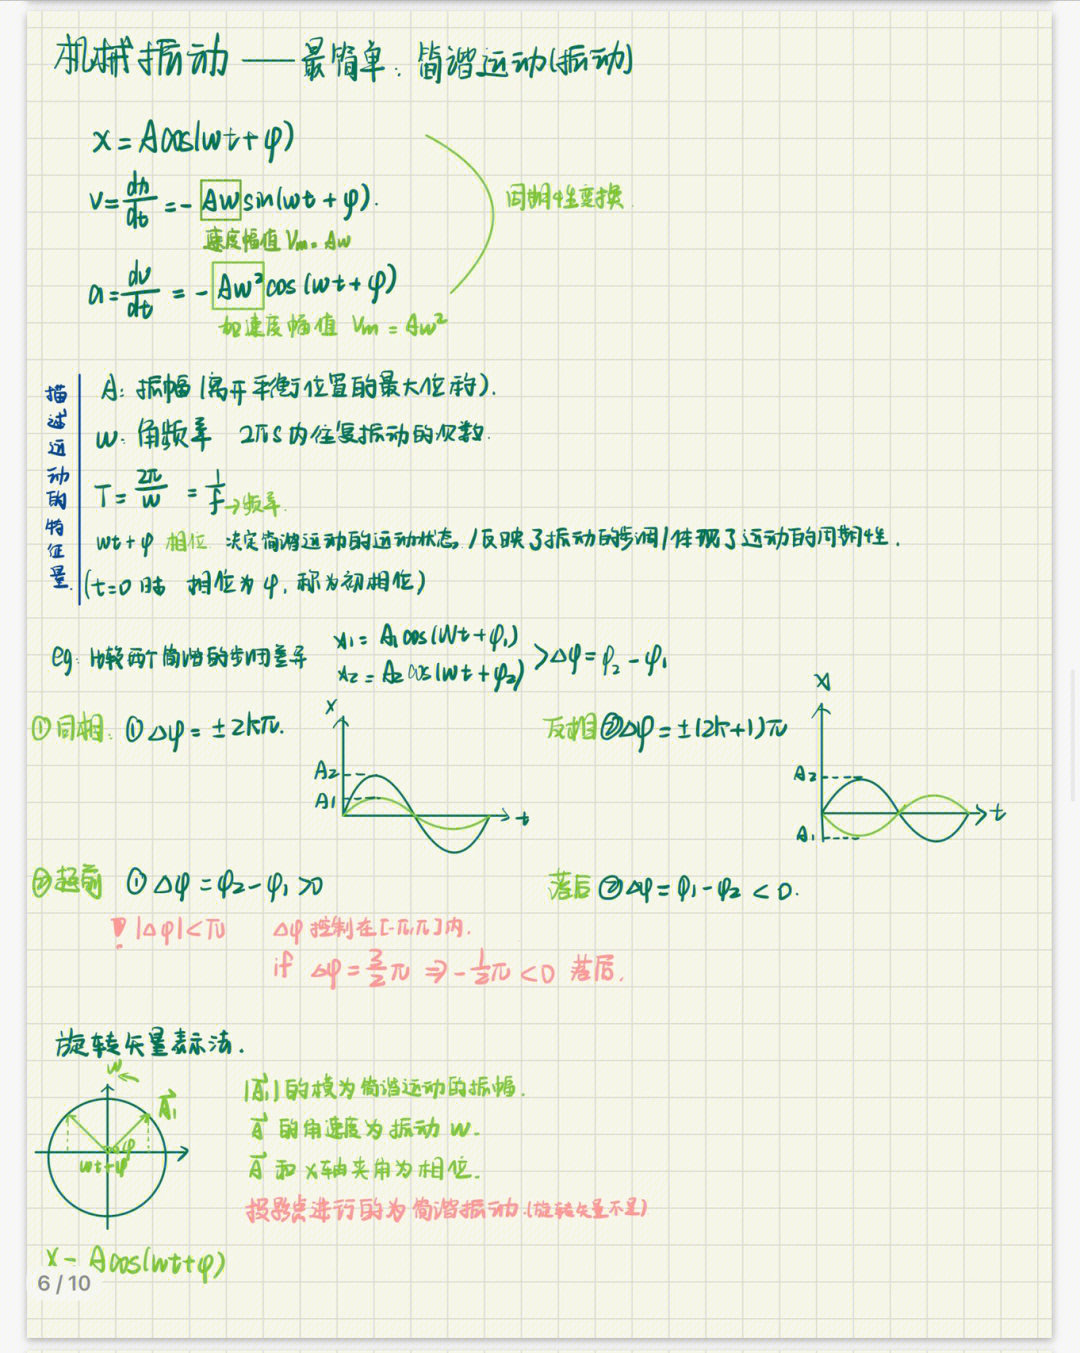 机械振动——最简单：简谐运动(振动)
x = Acos(wt+φ)
v = dx/dt = -Aw sin(wt+φ).
周期性变换.
速度幅值 Vm = Aw
a = dv/dt = -Aw² cos(wt+φ)
加速度幅值 Vm = Aw²
描述运动的特征量.
A: 振幅 (离开平衡位置的最大位移).
w: 角频率 2πs内往复振动的次数.
T = 2π/w = 1/f → 频率.
wt+φ 相位 决定简谐运动的运动状态, /反映了振动的步调/体现了运动的周期性.
(t=0时 相位为φ, 称为初相位)
x1 = A1cos(wt+φ1)
eg: 比较两个简谐的步调差异 > Δφ = φ2-φ1
x2 = A2cos(wt+φ2)
①同相: ①Δφ = ±2kπ.
x
A2
A1
t
反相②Δφ = ±(2k+1)π
x
A2
A1
t
②超前 ①Δφ = φ2-φ1 > 0
落后②Δφ = φ1-φ2 < 0.
! |Δφ| < π Δφ 控制在[-π,π]内.
if Δφ = 3/2π ⇒ -1/2π < 0 落后.
旋转矢量表示法.
w
A1
φ
wt+φ
|A1|的模为简谐运动的振幅.
A 的角速度为振动w.
A 和x轴夹角为相位.
投影点进行的为简谐振动.(旋转矢量不是)
x - Acos(wt+φ)
6 / 10